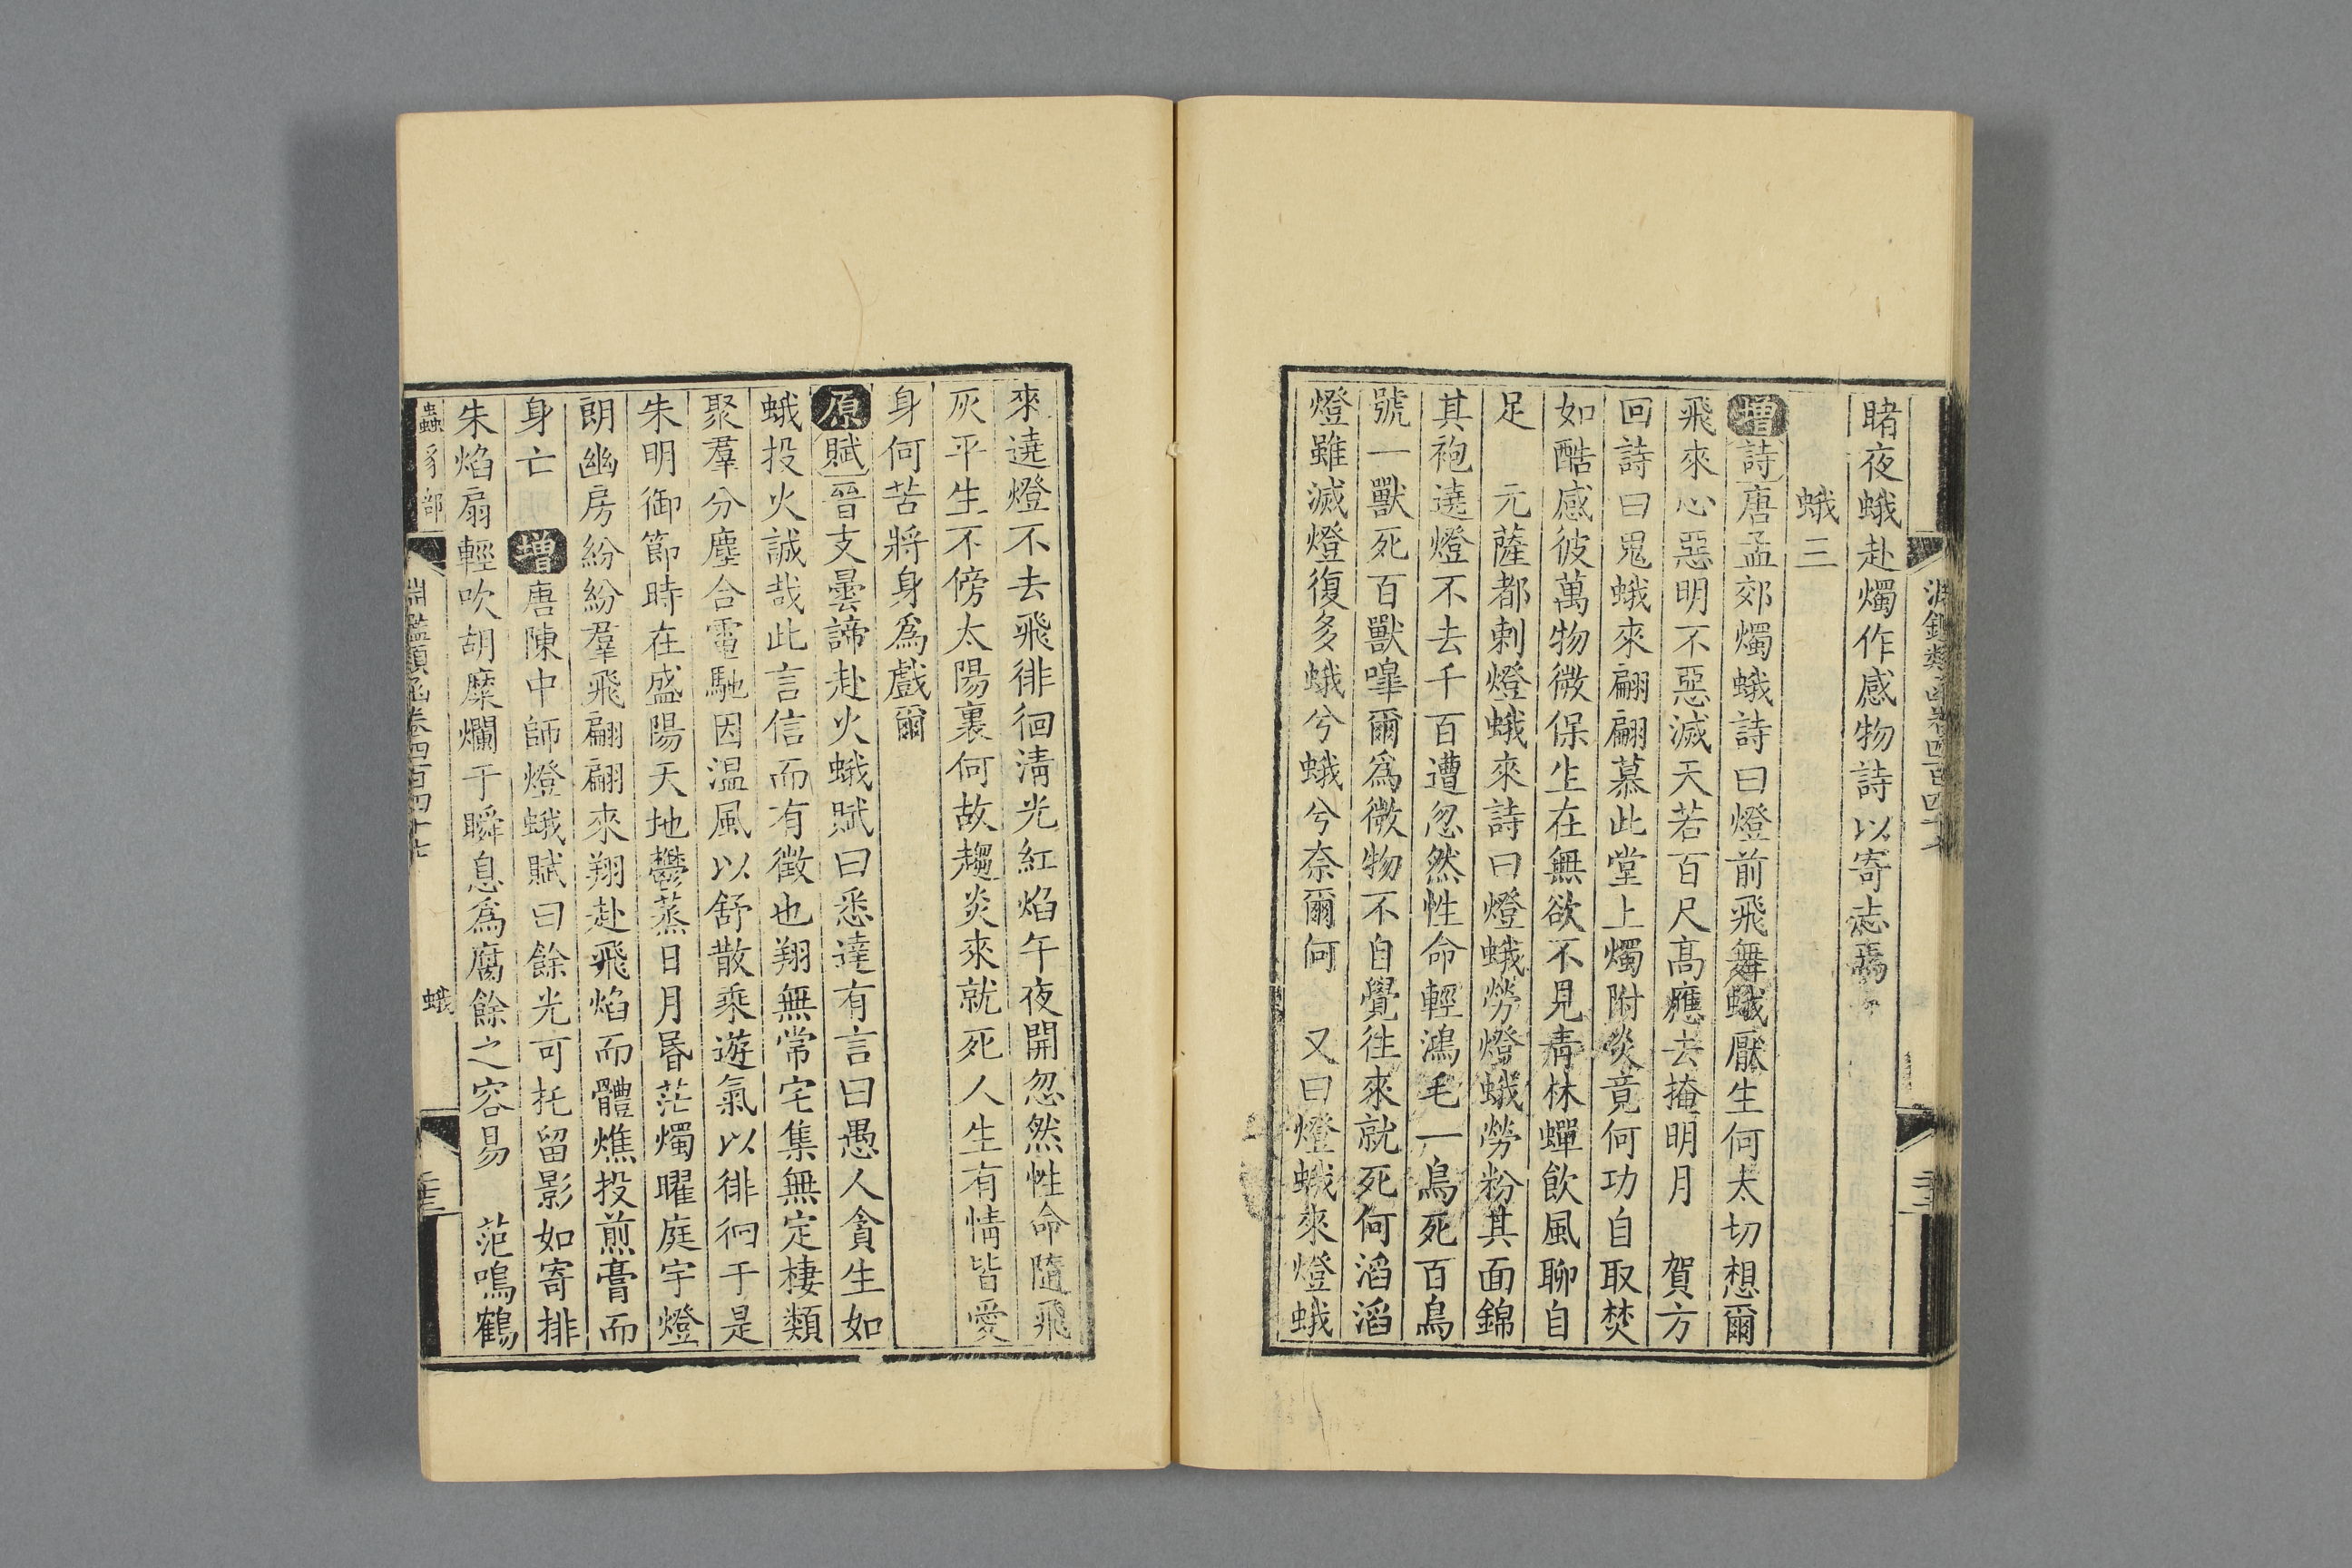 睹夜蛾赴燭作感物詩以寄志焉
蛾三
增詩唐孟郊燭蛾詩曰燈前飛舞蛾厭生何太切想爾
飛來心惡明不惡滅天若百尺高應去掩明月　賀方
回詩曰鬼蛾來翩翩慕此堂上燭附炎竟何功自取焚
如酷感彼萬物微保生在無欲不見青林蟬飲風聊自
足　元薩都剌燈蛾來詩曰燈蛾勞燈蛾勞粉其面錦
其袍遶燈不去千百遭忽然性命輕鴻毛一鳥死百鳥
號一獸死百獸嘷爾爲微物不自覺往來就死何滔滔
燈雖滅燈復多蛾兮蛾兮奈爾何　又曰燈蛾來燈蛾
來遶燈不去飛徘徊清光紅焰午夜開忽然性命隨飛
灰平生不傍太陽裏何故趨炎來就死人生有情皆愛
身何苦將身爲戲爾
原賦晉支曇諦赴火蛾賦曰悉達有言曰愚人貪生如
蛾投火誠哉此言信而有徵也翔無常宅集無定棲類
聚羣分塵合電馳因温風以舒散乘遊氣以徘徊于是
朱明御節時在盛陽天地鬱蒸日月昏茫燭曜庭宇燈
朗幽房紛紛羣飛翩翩來翔赴飛焰而體燋投煎膏而
身亡　增唐陳中師燈蛾賦曰餘光可托留影如寄排
朱焰扇輕吹胡糜爛于瞬息爲腐餘之容易　范鳴鶴
蟲豸部
淵鑑類函卷四百四十七
蛾